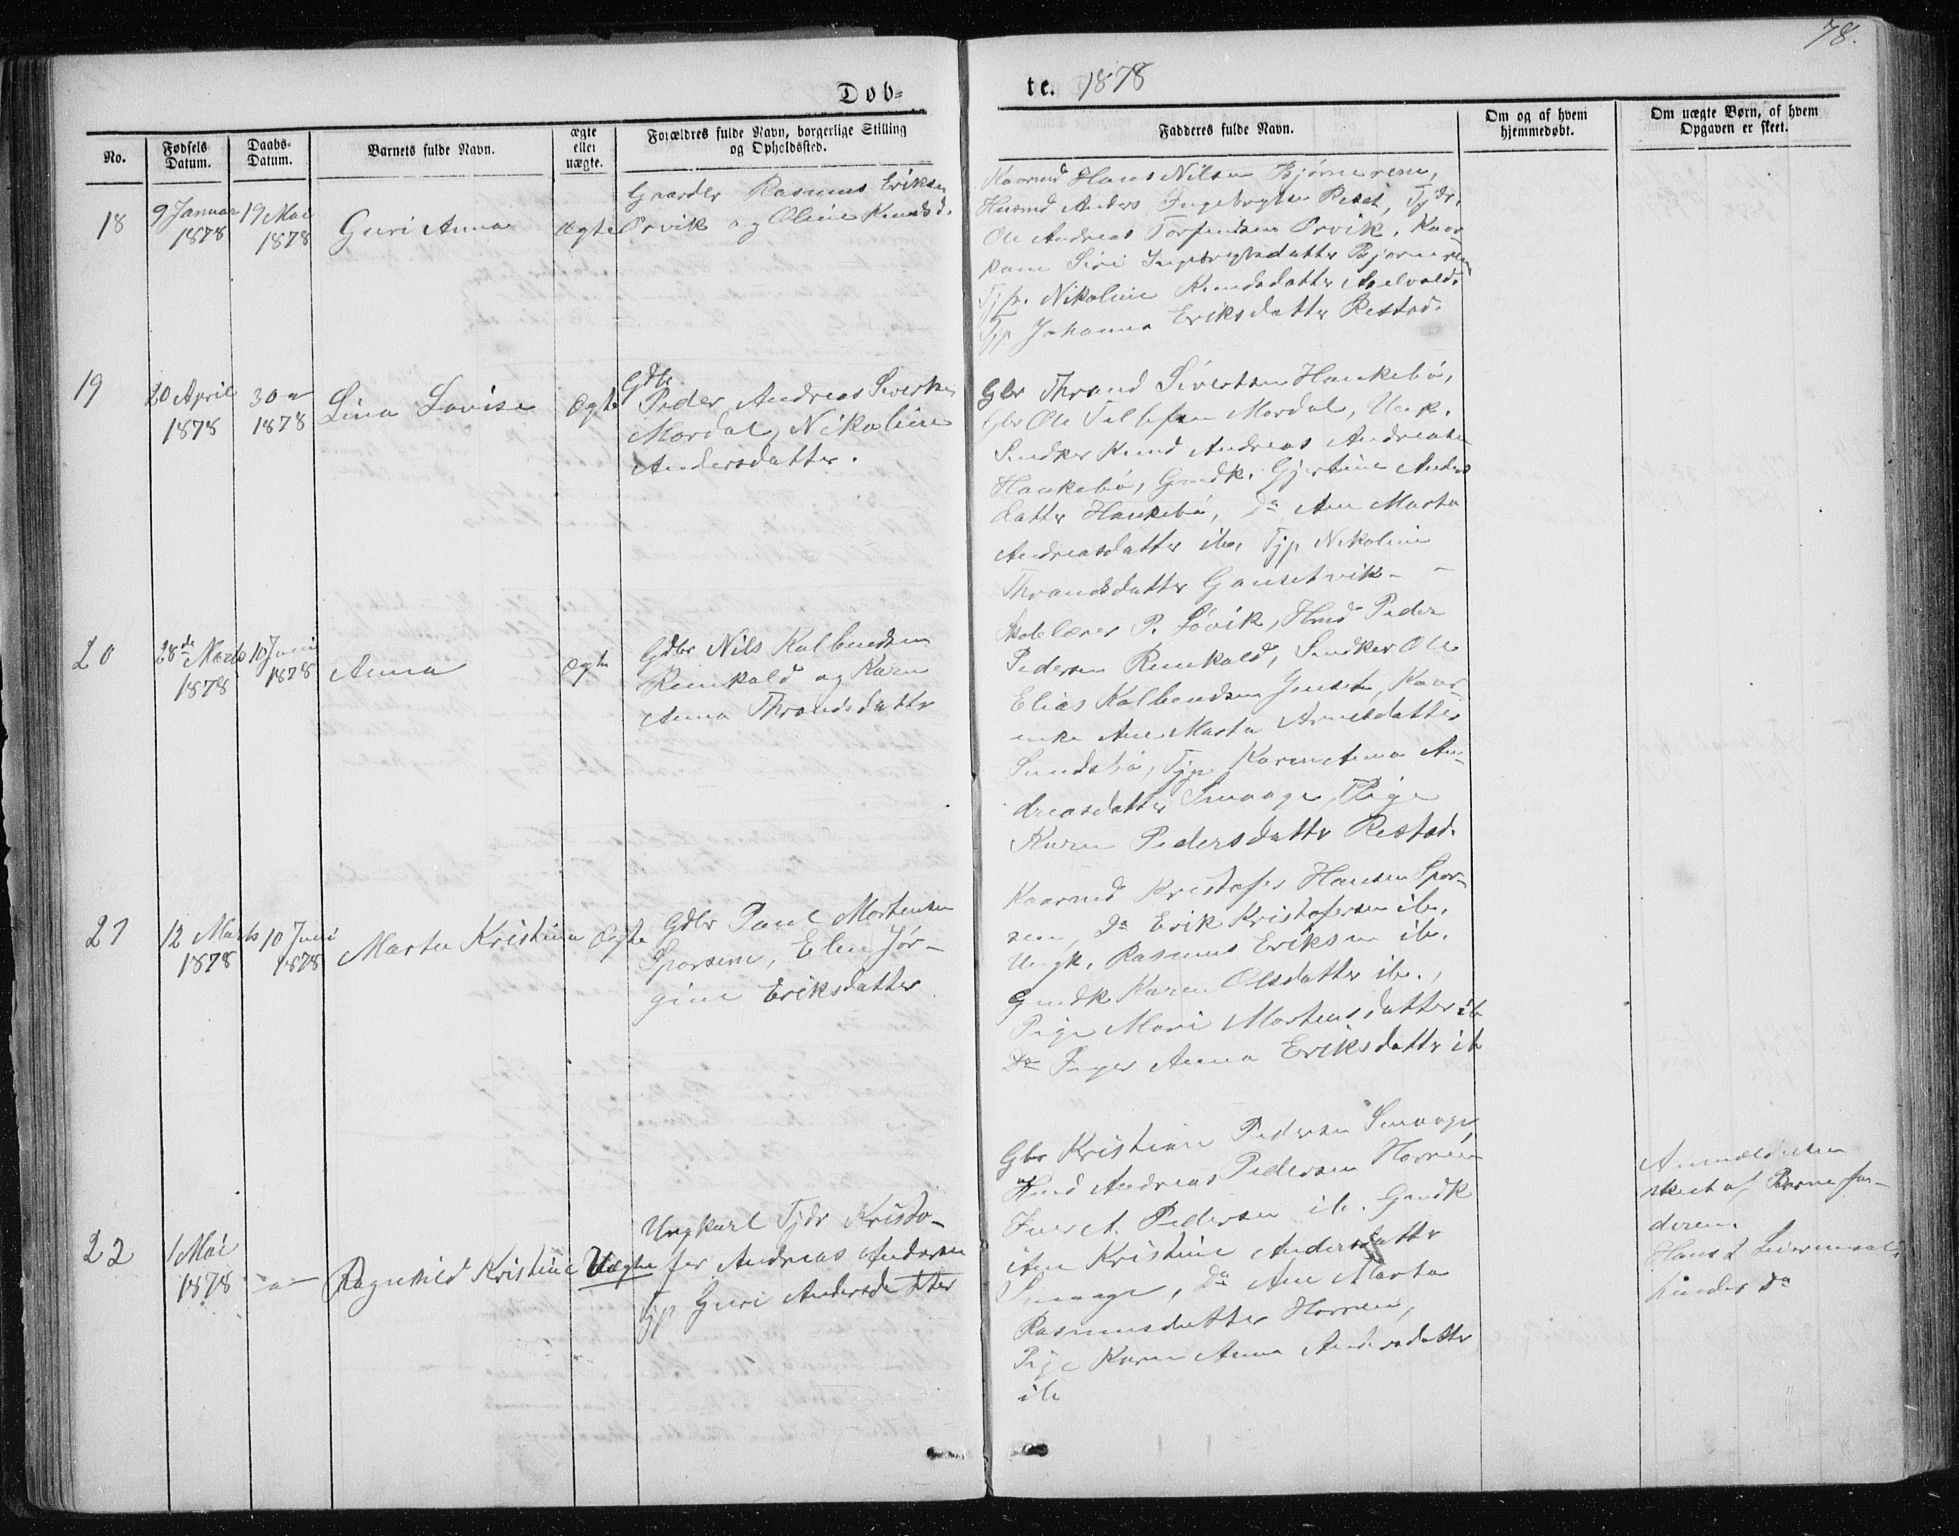 78.
Døb=
te. 1878
No.
Fødsels Datum.
Daabs-Datum.
Barnets fulde Navn.
ægte eller uægte.
Forældres fulde Navn, borgerlige Stilling og Opholdssted.
Fadderes fulde Navn.
Om og af hvem hjemmedøbt.
Om uægte Børn, af hvem Opgaven er skeet.
18
9 Januar 1878
19 Mai 1878
Guri Anna
Ægte
Gaardbr Rasmus Eriksen
Orvik og Oline Knudsd.
Kaarmd Hans Nilsen Bjørnerem,
Husmd Anders Ingebrigtsen Restad, Tjdr.
Ole Andreas Torfindsen Orvik, Kaar-
kone Siri Ingebrigtsdatter Bjørnerem
Tjp. Nikoline Knudsdatter
Tjp Johanna Eriksdatter Restad.
19
20 April 1878
30 " 1878
Lina Lovise
Ægte
Gdbr
Peder Andreas Sivertsen
Mordal, Nikoline
Andersdatter.
Gbr Thrond Sivertsen Haukebø,
Gbr Ole Tollefsen Mordal, Ungk.
Snedker Knud Andreas Andreasen
Haukebø, Gmdk. Gjertine Anders
datter Haukebø, Do Ane Marta
Andreasdatter ib. Tjp Nikoline
Throndsdatter Gausetvik -
20
28de Marts 1878
10 Juni 1878
Anna
Ægte
Gdbr Nils Kolbendsen
Rimkald og Karen
Anna Throndsdatter
Skolelærer P. Løvik, Hmd Peder
Pedersen Rimkald, Snedker Ole
Elias Kolbendsen Juset, Kaar-
enke Ane Marta Arnesdatter
Sundsbø, Tjp Karen Anna An-
dreasdatter Smaage, Pige
Karen Pedersdatter Restad.
21
12 Marts 1878
10 Juni 1878
Marta Kristina
Ægte
Gdbr Paul Mortensen
Sporsem, Elen Jør-
gine Eriksdatter
Kaarmd Kristofer Hansen Spor-
sem, Do Erik Kristofersen ib.
Ungk. Rasmus Eriksen ib.
Gmdk Karen Olsdatter ib.,
Pige Mari Mortensdatter ib
Do Inger Anna Eriksdatter ib
22
1 Mai 1878
- " -
Ragnhild Kristine
Uægte
Ungkarl Tjdr Kristo-
fer Andreas Andersen
Tjp Guri Andersdatter
Gbr Kristian Pedersen Smaage,
Hmd Andreas Pedersen Horrem
Iver A. Pedersen ib. Gmdk
Ane Kristine Andersdatter
Smaage, Do Ane Marta
Rasmusdatter Horrem,
Pige Karen Anna Andersdatter
ib
Anmeldelsen
skeet af Barnefa-
deren.
Hans d